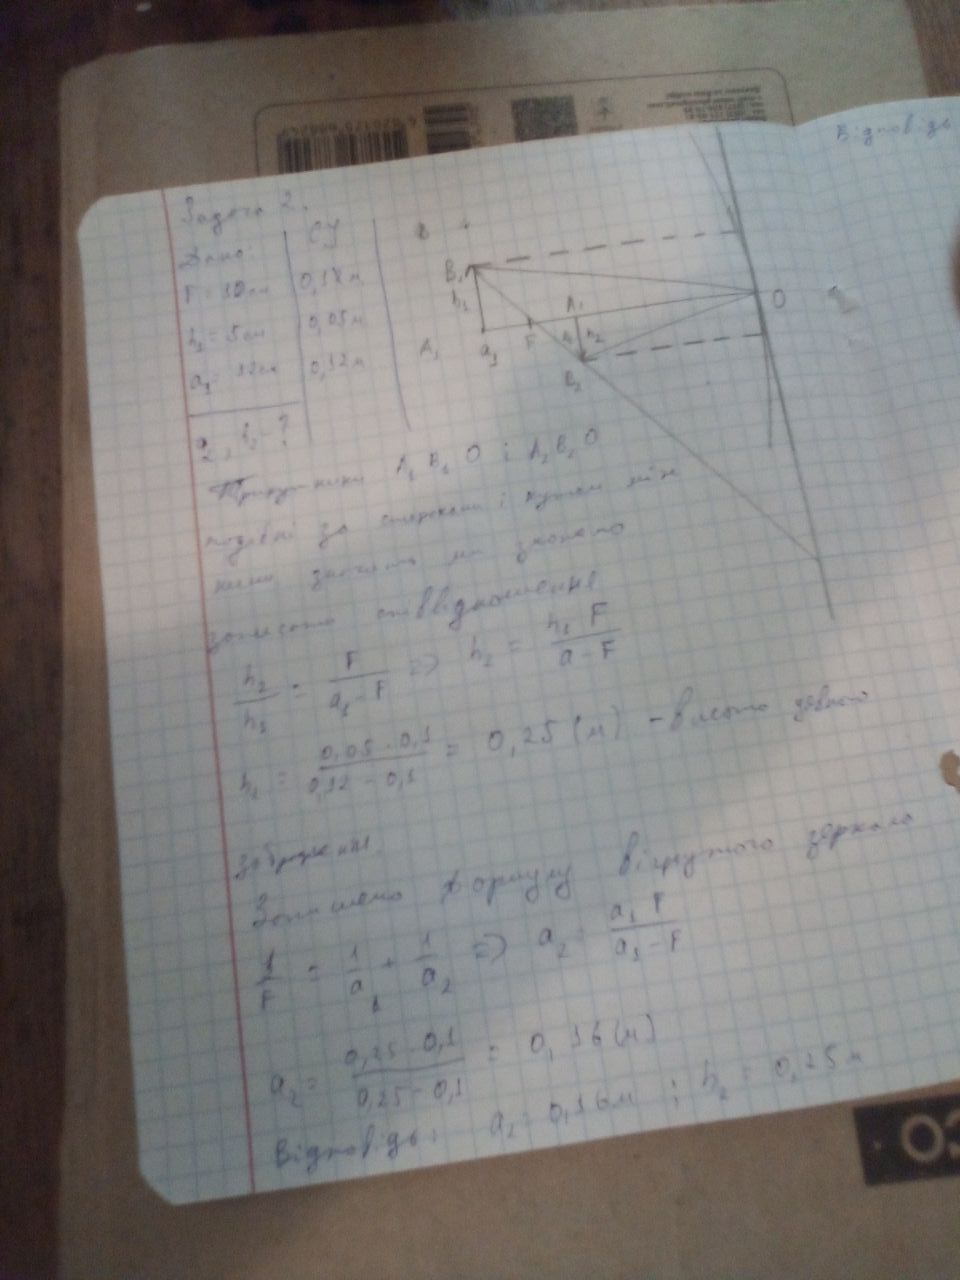 Відповідь
Задача 2.
Дано: СУ
F = 10см 0,1 м
h₁ = 5см 0,05м
a₁ = 12см 0,12м
a₂, h₂ - ?
B₁
h₁
a₁
F
A₁
h₂
B₂
O
A₁
Трикутники A₁ B₁ O і A₂ B₂ O
подібні за сторонами і кутом між
ними
записати співвідношення
h₂/h₁ = F/(a₁ - F) => h₂ = h₁ F/(a - F)
h₂ = 0,05 · 0,1/(0,12 - 0,1) = 0,25 (м) -
зображення.
Запишемо формулу вігнутого зеркала
1/F = 1/a₁ + 1/a₂ => a₂ = a₁ F/(a₁ - F)
a₂ = 0,25 · 0,1/(0,25 - 0,1) = 0,16 (м)
Відповідь: a₂ = 0,16м ; h₂ = 0,25м